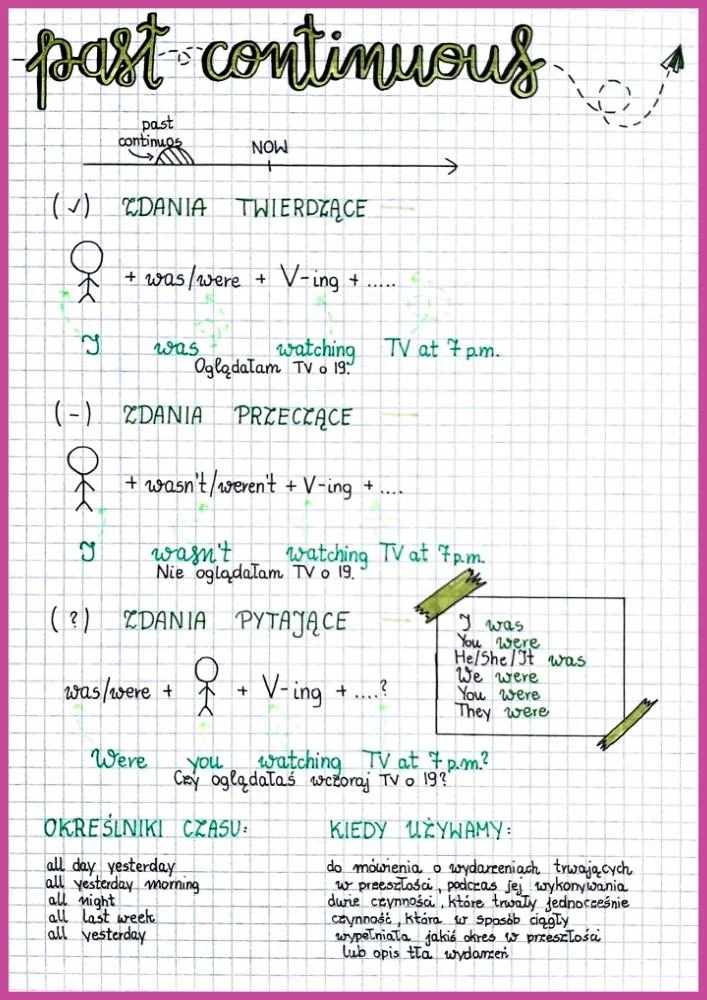 past continuous
past
continuos
NOW
(✓) ZDANIA TWIERDZĄCE
+ was/were + V-ing + .....
I was watching TV at 7 p.m.
Oglądałam TV o 19.
(-) ZDANIA PRZECZĄCE
+ wasn't/weren't + V-ing + ....
I wasn't watching TV at 7p.m.
Nie oglądałam TV o 19.
(?) ZDANIA PYTAJĄCE
was/were + + V-ing + ....?
Were you watching TV at 7 p.m.?
Czy oglądałaś wczoraj TV o 19?
I was
You were
He/She/It was
We were
You were
They were
OKREŚLNIKI CZASU:
all day yesterday
all yesterday morning
all night
all last week
all yesterday
KIEDY UŻYWAMY:
do mówienia o wydarzeniach trwających
w przeszłości, podczas jej wykonywania
dwie czynności, które trwały jednocześnie
czynność, która w sposób ciągły
wypełniała jakiś okres w przeszłości
lub opis tła wydarzeń